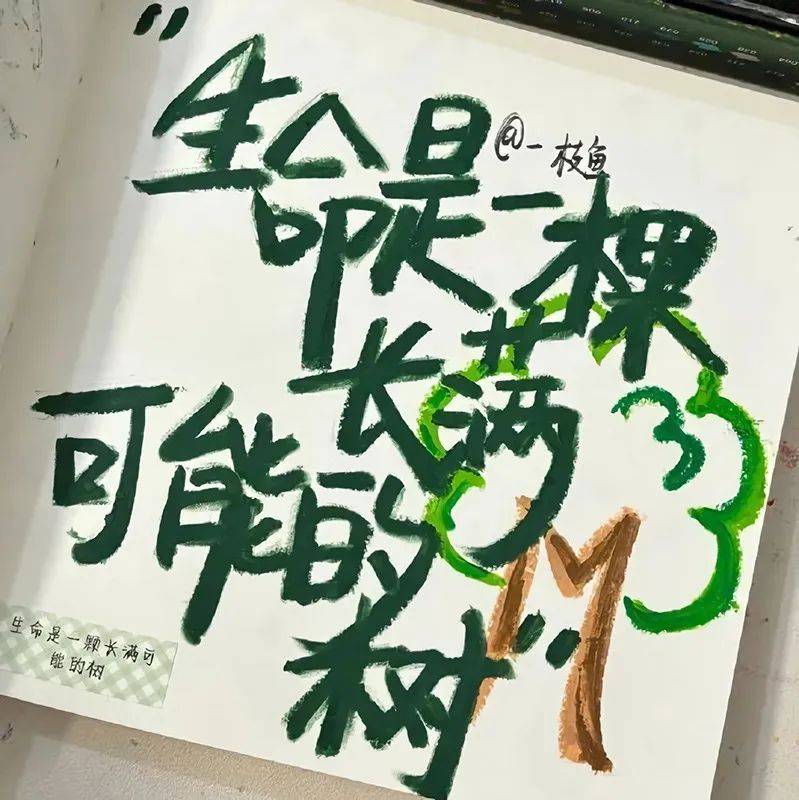 “生命是一棵
长满
可能的
树”
@一枝鱼
生命是一颗长满可
能的树